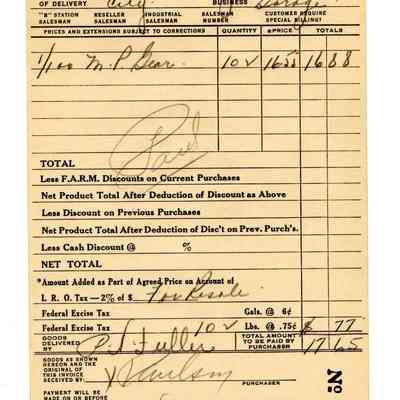 OF DELIVERY City BUSINESS Garage
"B" STATION SALESMAN RESELLER SALESMAN INDUSTRIAL SALESMAN SALESMAN NUMBER CUSTOMER REQUIRE SPECIAL BILLING?
PRICES AND EXTENSIONS SUBJECT TO CORRECTIONS QUANTITY @PRICE TOTALS
1/100 M.P. Gear 102 16 55 16 88
Paul
TOTAL
Less F.A.R.M. Discounts on Current Purchases
Net Product Total After Deduction of Discount as Above
Less Discount on Previous Purchases
Net Product Total After Deduction of Disc't on Prev. Purch's.
Less Cash Discount @ %
NET TOTAL
*Amount Added as Part of Agreed Price on Account of
I. R. O. Tax—2% of $ For Resale
Federal Excise Tax Gals. @ 6¢
Federal Excise Tax 102 Lbs. @ .75¢ $ 77
GOODS DELIVERED BY Fuller TOTAL AMOUNT TO BE PAID BY PURCHASER 17 65
GOODS AS SHOWN HEREON AND THE ORIGINAL OF THIS INVOICE RECEIVED BY: PURCHASER
PAYMENT WILL BE MADE ON OR BEFORE
No.